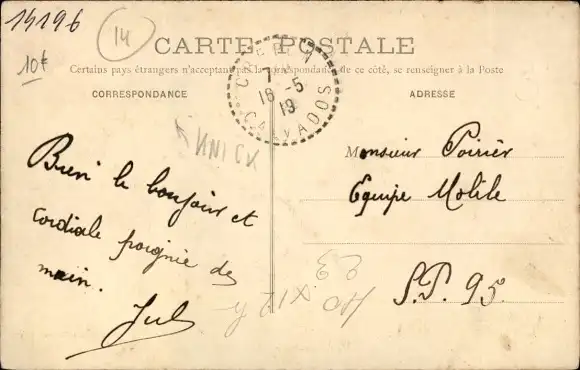 14196
14
10€
CARTE POSTALE
Certains pays étrangers n'acceptant pas la correspondance de ce côté, se renseigner à la Poste
CORRESPONDANCE
ADRESSE
7
16 -5
19
CALVADOS
KNICK
Bien le bonjour et
cordiale poignée de
main.
Jul
Monsieur Poirier
Equipe Mobile
S.P. 95.